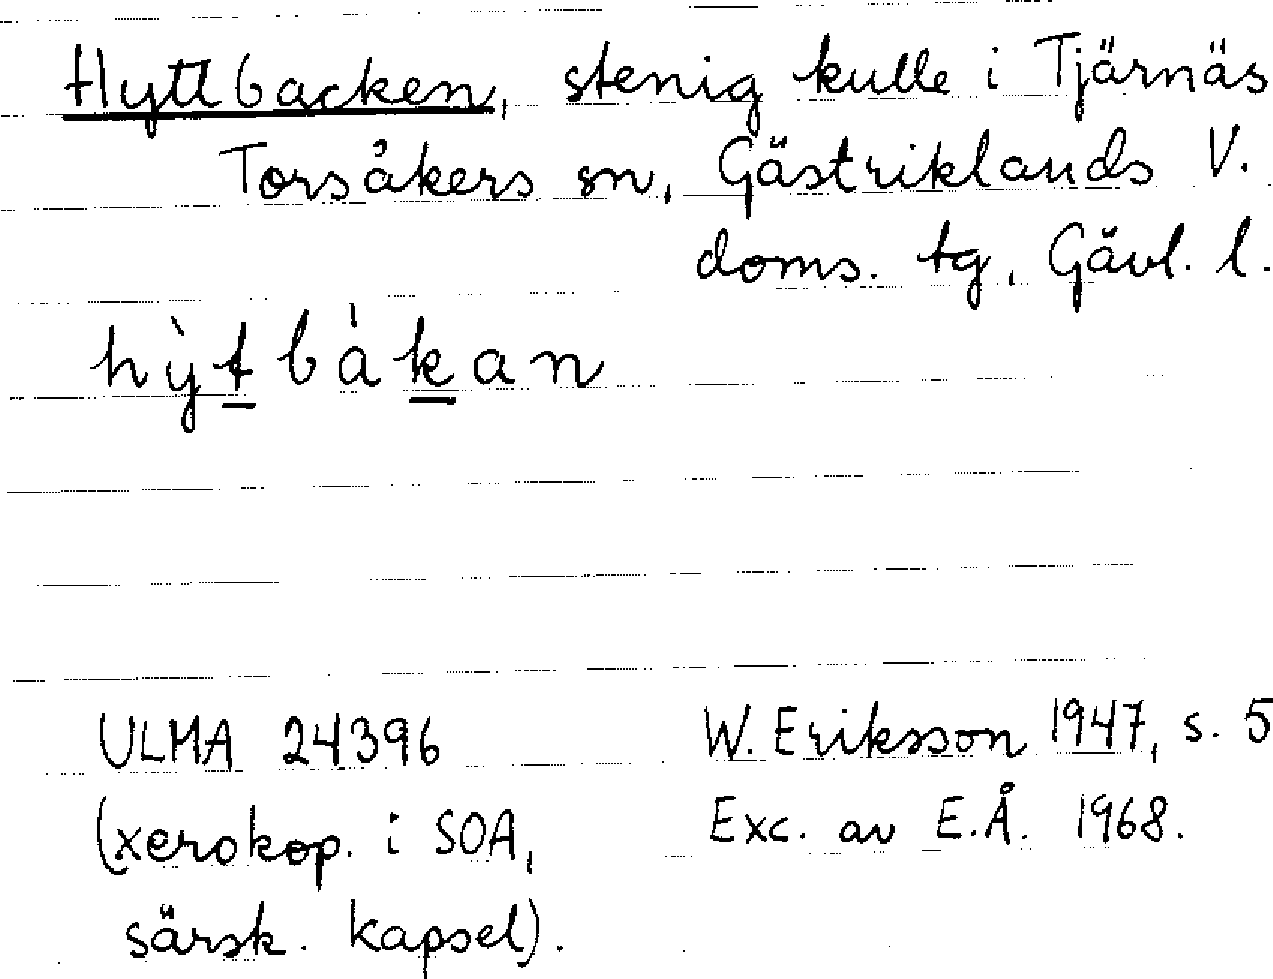 Hyttbacken, stenig kulle i Tjärnäs
Torsåkers sn, Gästriklands V.
doms. tg, Gävl. l.
hỳt̲bàk̲an
ULMA 24396
(xerokop. i SOA,
särsk. kapsel).
W. Eriksson 1947, s. 5
Exc. av E.Å. 1968.